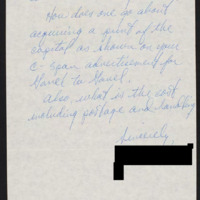 How does one go about
acquiring a print of the
capital as shown on your
C-Span advertisement for
Gavel to Gavel.
Also, what is the cost
including postage and handling
Sincerely,